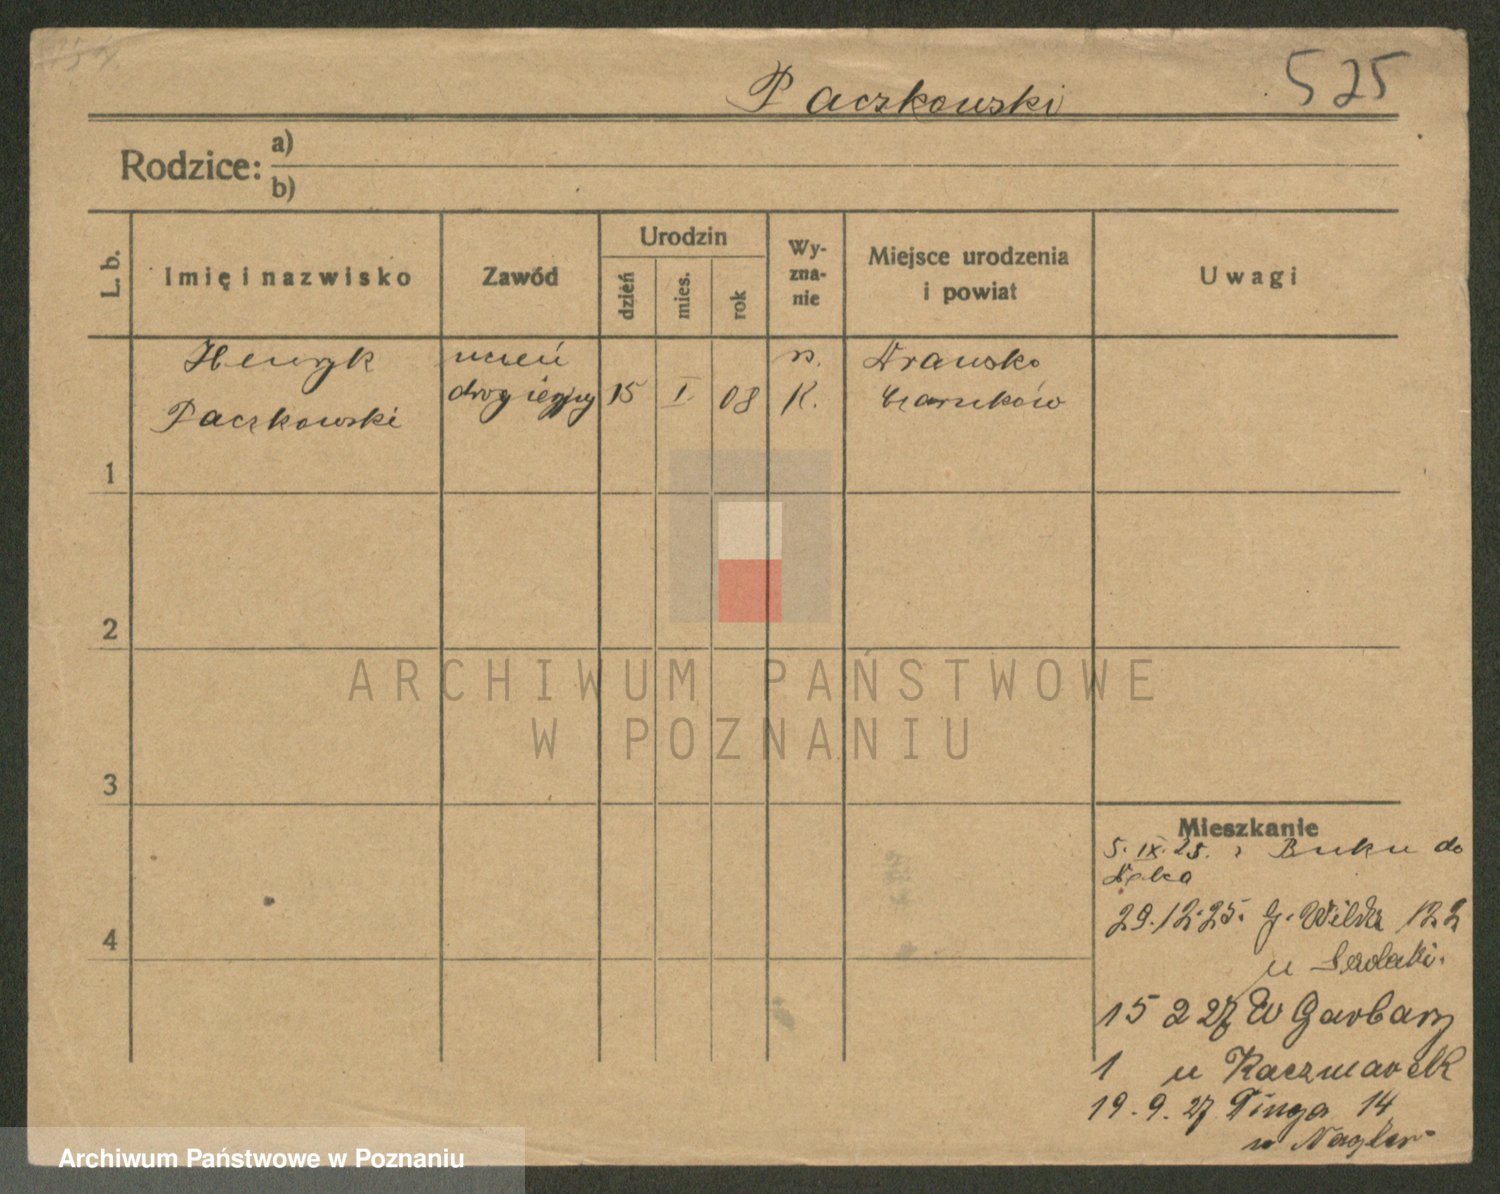 525
Paczkowski
Rodzice: a)
b)
L. b.
Imię i nazwisko
Zawód
Urodzin
dzień
mies.
rok
Wy-
zna-
nie
Miejsce urodzenia
i powiat
Uwagi
Henryk
Paczkowski
uczeń
15
I.
08
r.
K.
Drawsko
Czarnków
1
2
3
4
ARCHIWUM PAŃSTWOWE
W POZNANIU
Mieszkanie
5. IX. 25. z Buku do
29.12.25. G. Wilda 122
u
15 2 27 W Garbary
1 u Kaczmarek
19.9.27 14
u Nagler
Archiwum Państwowe w Poznaniu